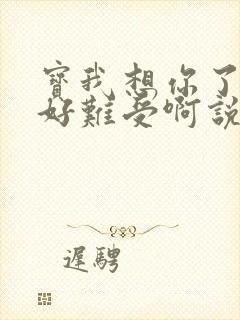 寶我想你了
好難受啊說
遲騁